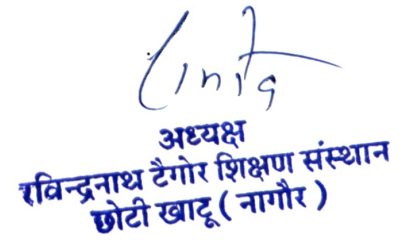 अध्यक्ष
रविन्द्रनाथ टैगोर शिक्षण संस्थान
छोटी खाटू ( नागौर )